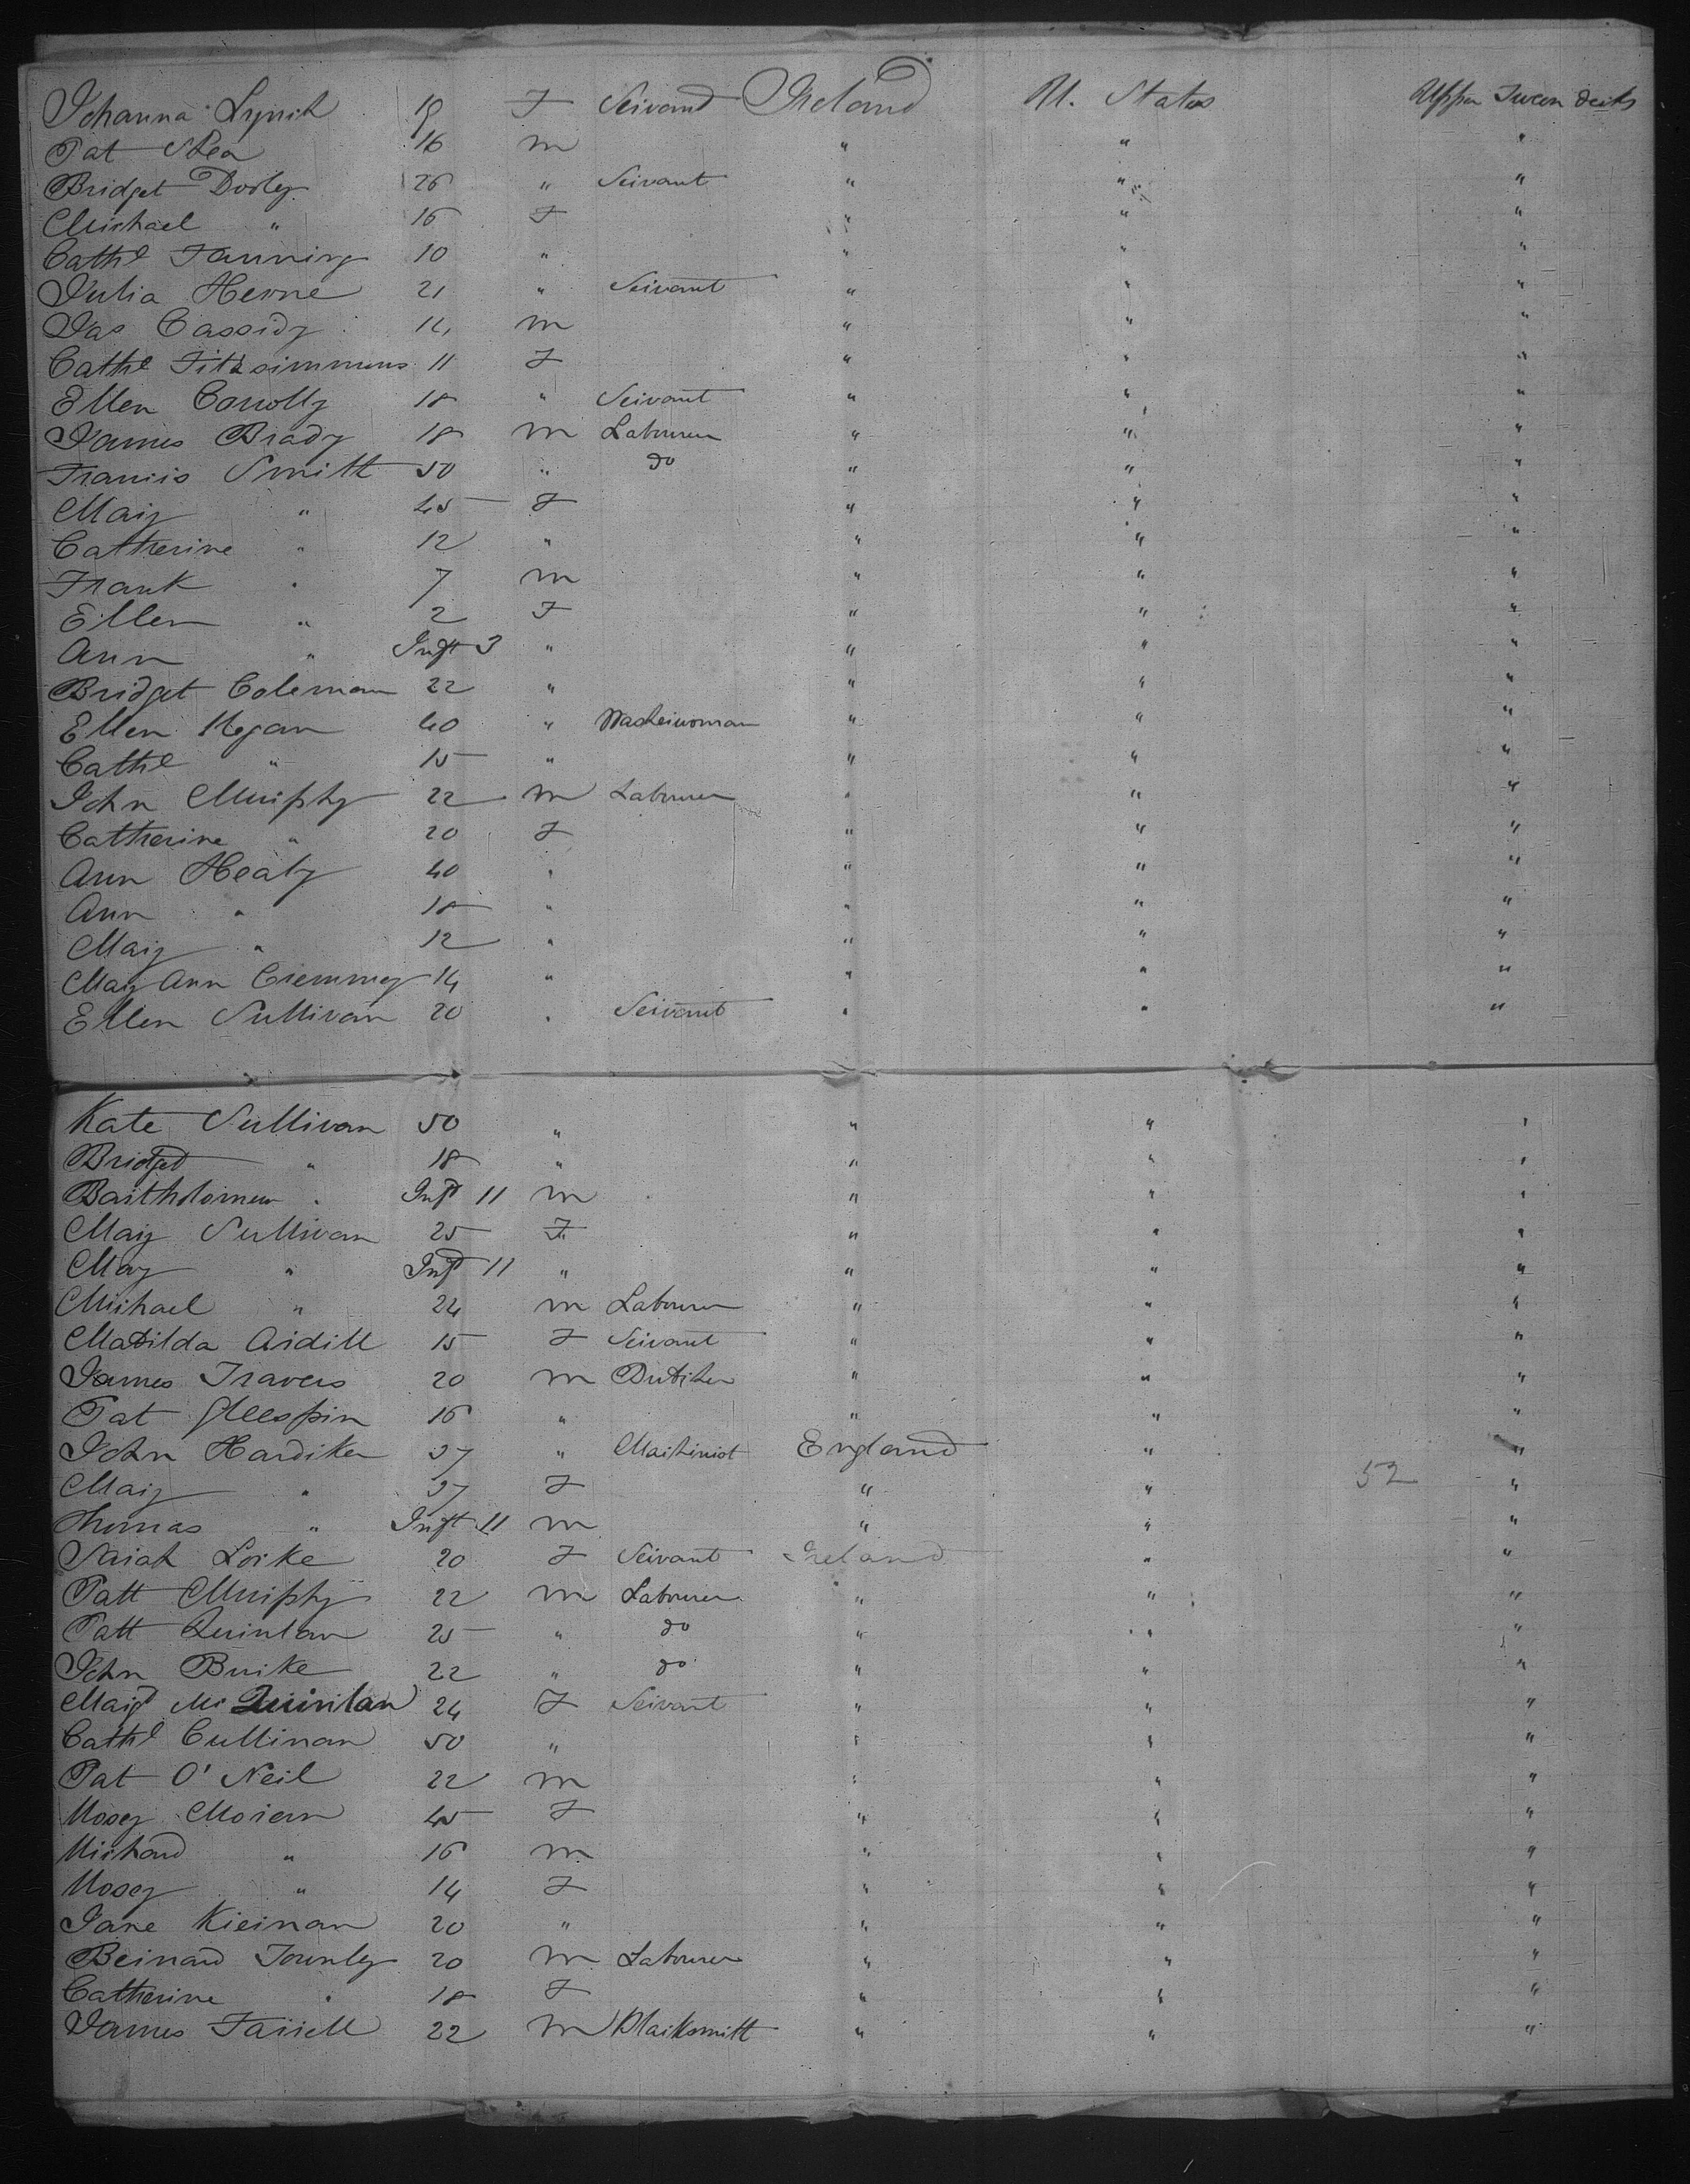 Johanna Lynch 19 F Servant Ireland U. States Upper Tween decks
Pat Shea 16 m " " "
Bridget Dooley 26 " Servant " " "
Michael " 16 F " " "
Cathe Fanning 10 " " " "
Julia Herne 21 " Servant " " "
Jas Cassidy 14 m " " "
Cathe Fitzsimmons 11 F " " "
Ellen Conolly 18 " Servant " " "
James Brady 18 m Labourer " " "
Francis Smith 50 " do " " "
Mary " 45 F " " "
Catherine " 12 " " " "
Frank " 7 m " " "
Ellen " 2 F " " "
Ann " Inft 3 " " " "
Bridget Coleman 22 " " " "
Ellen Regan 40 " Washerwoman " " "
Cathe " 15 " " " "
John Murphy 22 m Labourer " " "
Catherine " 20 F " " "
Ann Healy 40 " " " "
Ann " 18 " " " "
Mary " 12 " " " "
Mary Ann 14 " " " "
Ellen Sullivan 20 " Servant " " "
Kate Sullivan 50 " " " "
Bridget " 18 " " " "
Bartholomew " Inft 11 m " " "
Mary Sullivan 25 F " " "
Mary " Inft 11 " " " "
Michael " 24 m Labourer " " "
Matilda Ardill 15 F Servant " " "
James Travers 20 m Butcher " " "
Pat 16 " " " "
John Hardiker 37 " Machinist England " "
Mary " 37 F " " 52 "
Thomas " Inft 11 m " " "
Sarah Locke 20 F Servant Ireland " "
Patt Murphy 22 m Labourer " " "
Patt Quinlan 25 " do " " "
John Burke 22 " do " " "
Margt Mc Quinlan 24 F Servant " " "
Cathe Cullinan 50 " " " "
Pat O' Neil 22 m " " "
Rosey Moran 45 F " " "
Richard " 16 m " " "
Rosey " 14 F " " "
Jane Kiernan 20 " " " "
Bernard Townley 20 m Labourer " " "
Catherine " 18 F " " "
James Farrell 22 m Blacksmith " " "